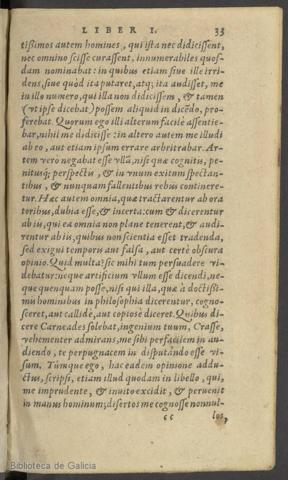 LIBER I. 33
tißimos autem homines, qui ista nec didicissent,
nec omnino scisse curassent, innumerabiles quos-
dam nominabat: in quibus etiam siue ille irri-
dens, siue quòd ita putaret, atq; ita audisset, me
in illo numero, qui illa non didicissem, & tamen
(vt ipse dicebat) possem aliquid in dicēdo, pro-
ferebat. Quorum ego illi alterum facilè assentie-
bar, nihil me didicisse: in altero autem me illudi
ab eo, aut etiam ipsum errare arbitrabar. Ar-
tem verò negabat esse vllā, nisi quæ cognitis, pe-
nitusq; perspectis, & in vnum exitum spectan-
tibus, & nunquam fallentibus rebus contineré-
tur. Hæc autem omnia, quæ tractarentur ab ora
toribus, dubia esse, & incerta: cùm & dicerentur
ab iis, qui ea omnia non planè tenerent, & audi-
rentur ab iis, quibus non scientia esset tradenda,
sed exigui temporis aut falsa, aut certè obscura
opinio. Quid multa? sic mihi tum persuadere vi-
debatur: neque artificium vllum esse dicendi, ne-
que quenquam posse, nisi qui illa, quæ à doctißi-
mis hominibus in philosophia dicerentur, cogno-
sceret, aut callidè, aut copiosè dicere. Quibus di-
cere Carneades solebat, ingenium tuum, Crasse,
vehementer admirans, me sibi perfacilem in au-
diendo, te perpugnacem in disputādo esse vi-
sum. Túmque ego, hac eadem opinione addu-
ctus, scripsi, etiam illud quodam in libello, qui,
me imprudente, & inuito excidit, & peruenit
in manus hominum, disertos me cognosse nonnul-
cc los,
Biblioteca de Galicia